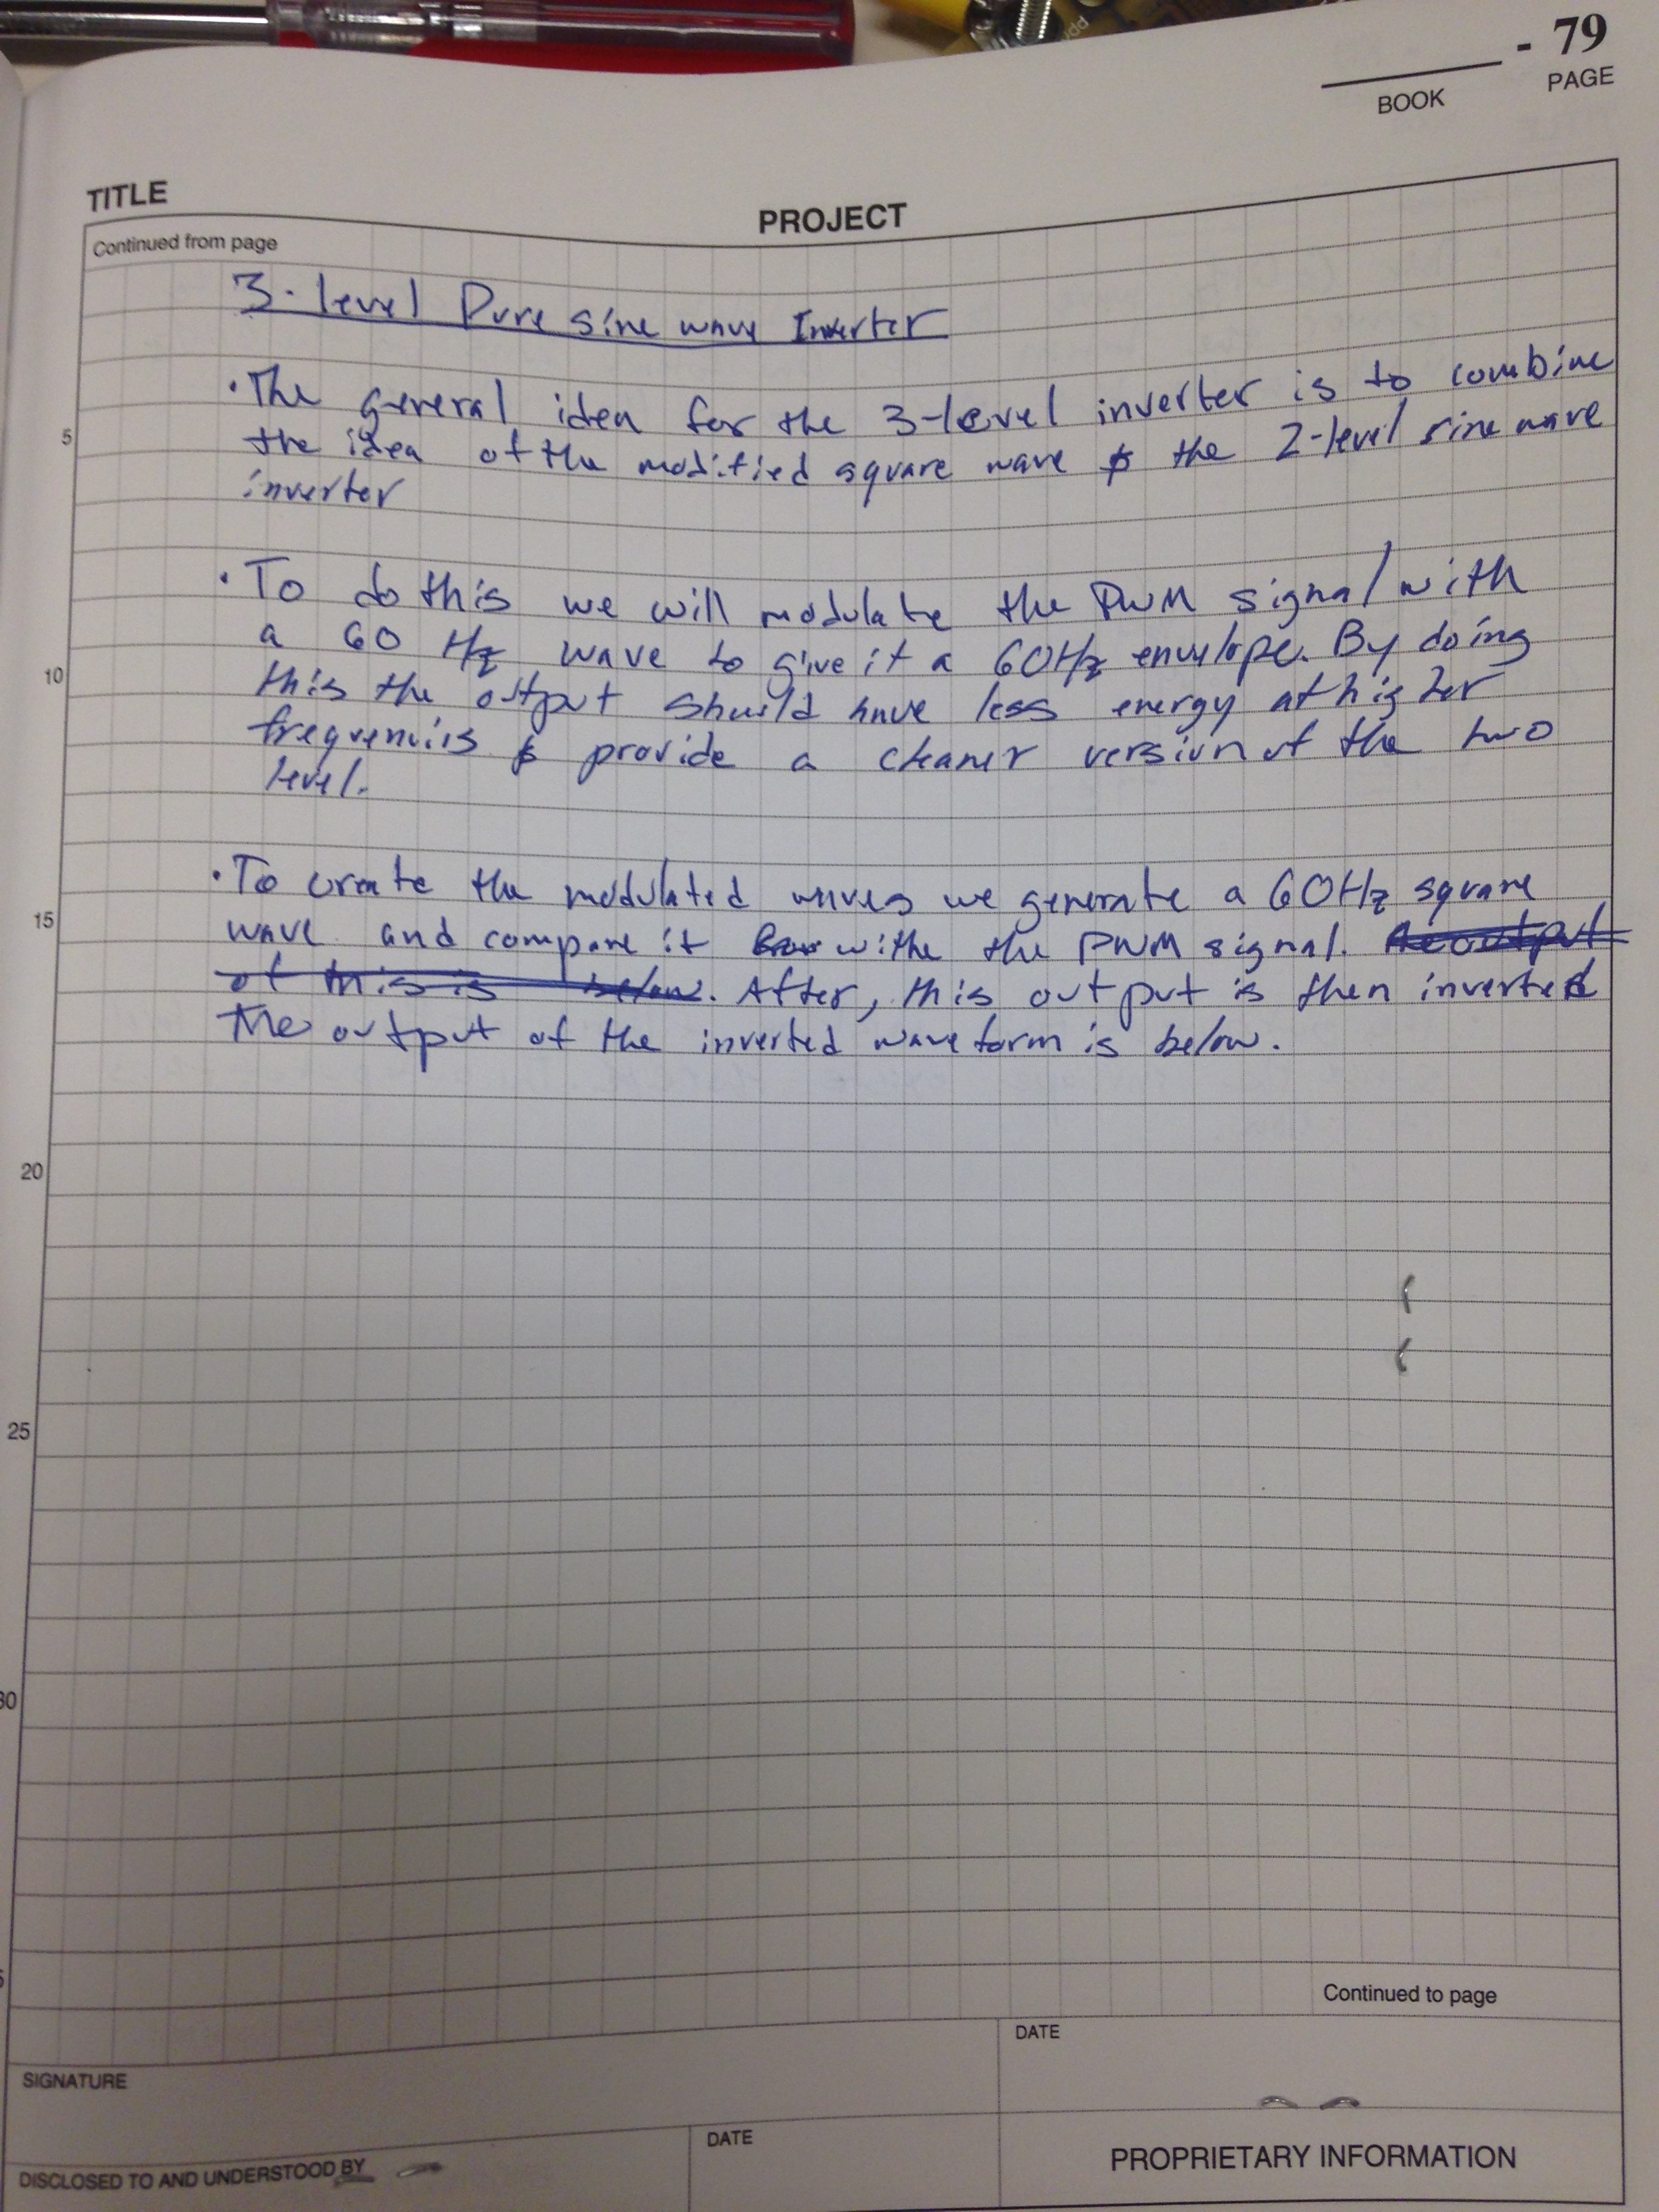 - 79
BOOK PAGE
TITLE
PROJECT
Continued from page
3-level Pure sine wave Inverter
• The general idea for the 3-level inverter is to combine
the idea of the modified square wave & the 2-level sine wave
inverter
5
• To do this we will modulate the PWM signal with
a 60 Hz wave to give it a 60Hz envelope. By doing
10
this the output should have less energy at higher
frequencies & provide a cleaner version of the two
level.
• To create the modulated waves we generate a 60Hz square
15
wave and compare it withe the PWM signal. The output
of this is below. After, this output is then inverted
The output of the inverted waveform is below.
20
25
30
Continued to page
SIGNATURE
DATE
DISCLOSED TO AND UNDERSTOOD BY
DATE
PROPRIETARY INFORMATION